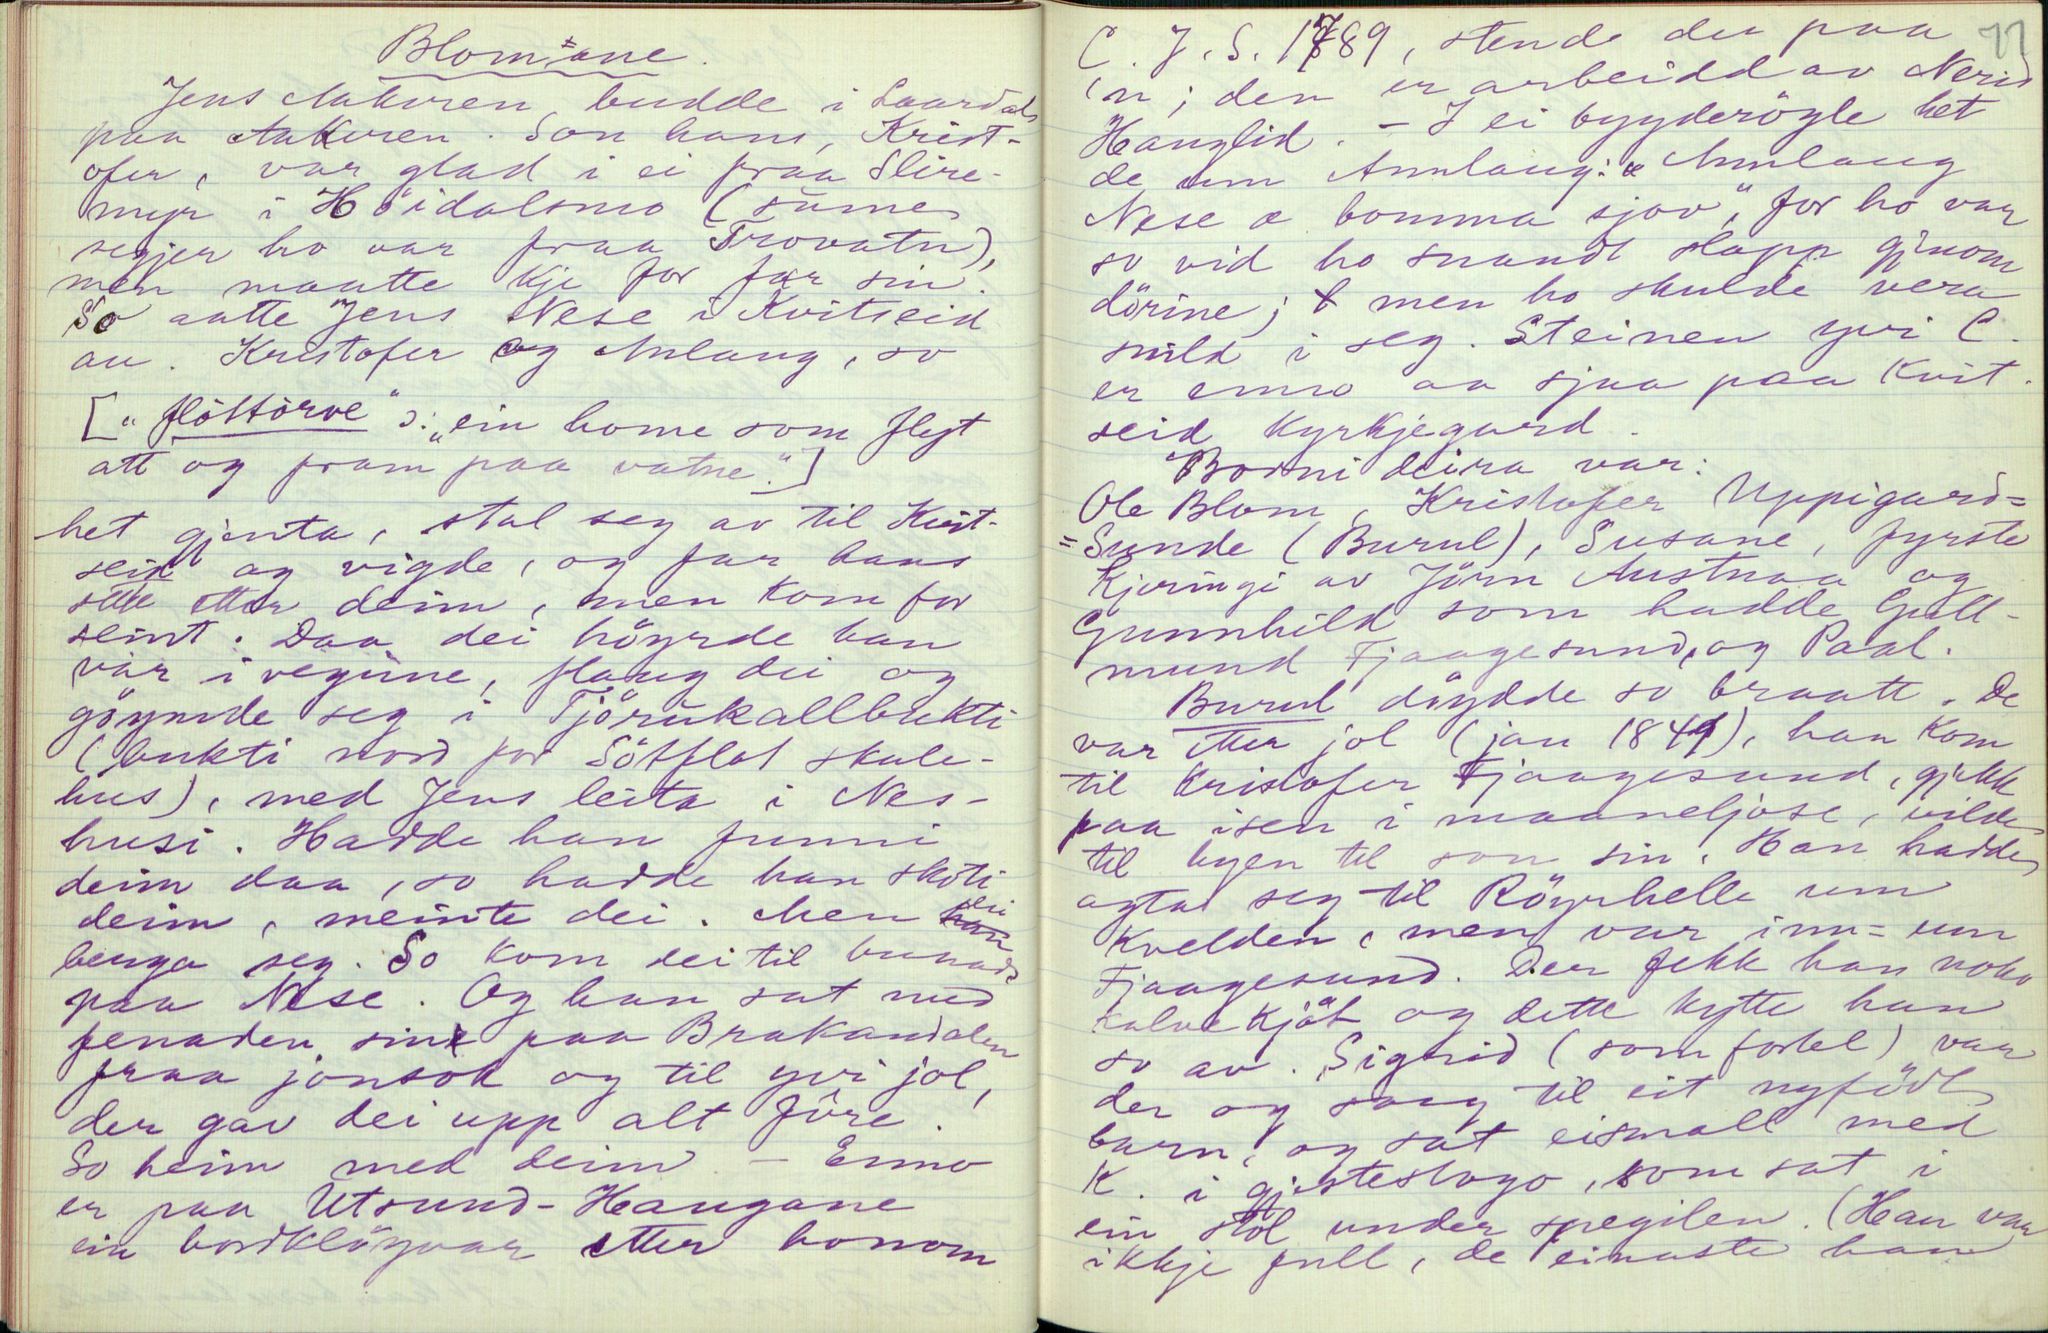 Blom-ane.
Jens Aakren, budde i Laardal
paa Aakren. Son hans, Krist-
ofer, var glad i ei fraa Slire-
myr i Höidalsmo (sume
segjer ho var fraa Trovatn),
men maatte kje for far sin.
So aatte Jens Nese i Kvitseid
au. Kristofer og Anlaug, so
["flöttörve" ɔ: "ein home som flyt
att og fram paa vatne."]
het gjenta, stal seg av til Kvit-
seid og vigde, og far hans
sette etter deim, men kom for
seint. Daa dei höyrde han
var i vegine, flaug dei og
göymde seg i Tjörukallbukti
(bukti nord for Sötflot skule-
hus), med Jens leita i Nes-
husi. Hadde han funni
deim daa, so hadde han skoti
deim, meinte dei. Men dei
berga seg. So kom dei til bunads
paa Nese. Og han sat med
fenaden sin paa Brakandalen
fraa jonsok og til yvi jol,
der gav dei upp alt fôre.
So heim med deim. – Enno
er paa Utsund-Haugane
ein bordklöyvar etter honom
77
C. J. S. 1789, stende der paa
'n; den er arbeidd av Nerid
Hauglid. – I ei bygderögle het
de um Annlaug: "Annlaug
Nese æ bomma sjov", for ho var
so vid ho snaudt slapp gjenom
dörine; men ho skulde vera
snild i seg. Steinen yvi C.
er enno aa sjaa paa Kvit-
seid Kyrkjegard.
Borni deira var:
Ole Blom, Kristofer Uppigard-
=Sunde (Burul), Susane, fyrste
Kjeringi av Jörn Austnaa og
Gunnhild som hadde Gull-
mund Fjaagesund, og Paal.
Burul döydde so braatt. De
var etter jol (jan 1841), han kom
til Kristofer Fjaagesund, gjekk
paa isen i maaneljose, vilde
til byen til son sin. Han hadde
agta seg til Röyrhelle um
kvelden, men var inn=um
Fjaagesund. Der fekk han noko
kalvekjöt og dette kytte han
so av. Sigrid (som fortel) var
der og saug til eit nyfödt
barn, og sat eismall med
K. i gjestestogo, som sat i
ein stol under spegilen. (Han var
ikkje full, de einaste han